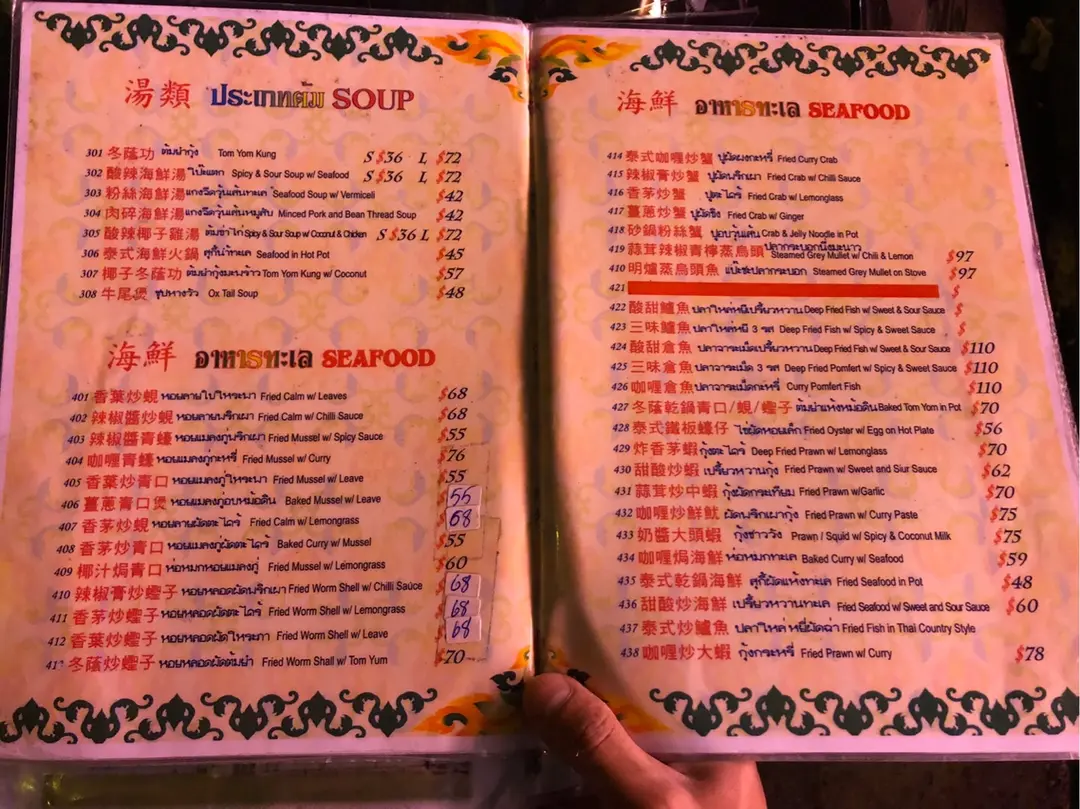 湯類 ประเภทต้ม SOUP
301 冬蔭功 ต้มยำกุ้ง Tom Yom Kung S $36 L $72
302 酸辣海鮮湯 โป๊ะแตก Spicy & Sour Soup w/ Seafood S $36 L $72
303 粉絲海鮮湯 แกงจืดวุ้นเส้นทะเล Seafood Soup w/ Vermiceli $42
304 肉碎海鮮湯 แกงจืดวุ้นเส้นหมูสับ Minced Pork and Bean Thread Soup $42
305 酸辣椰子雞湯 ต้มข่าไก่ Spicy & Sour Soup w/ Coconut & Chicken S $36 L $72
306 泰式海鮮火鍋 สุกี้น้ำทะเล Seafood in Hot Pot $45
307 椰子冬蔭功 ต้มยำกุ้งมะพร้าว Tom Yom Kung w/ Coconut $57
308 牛尾煲 ซุปหางวัว Ox Tail Soup $48
海鮮 อาหารทะเล SEAFOOD
401 香葉炒蜆 หอยลายใบโหระพา Fried Calm w/ Leaves $68
402 辣椒醬炒蜆 หอยลายพริกเผา Fried Calm w/ Chilli Sauce $68
403 辣椒醬青蠔 หอยแมลงภู่พริกเผา Fried Mussel w/ Spicy Sauce $55
404 咖喱青蠔 หอยแมลงภู่กะหรี่ Fried Mussel w/ Curry $76
405 香葉炒青口 หอยแมลงภู่โหระพา Fried Mussel w/ Leave $55
406 薑蔥青口煲 หอยแมลงภู่อบหม้อดิน Baked Mussel w/ Leave $55
407 香茅炒蜆 หอยลายผัดตะไคร้ Fried Calm w/ Lemongrass $68
408 香茅炒青口 หอยแมลงภู่ผัดตะไคร้ Baked Curry w/ Mussel $55
409 椰汁焗青口 ห่อหมกหอยแมลงภู่ Fried Mussel w/ Lemongrass $60
410 辣椒膏炒蟶子 หอยหลอดผัดพริกเผา Fried Worm Shell w/ Chilli Sauce $68
411 香茅炒蟶子 หอยหลอดผัดตะไคร้ Fried Worm Shell w/ Lemongrass $68
412 香葉炒蟶子 หอยหลอดผัดโหระพา Fried Worm Shell w/ Leave $68
冬蔭炒蟶子 หอยหลอดผัดต้มยำ Fried Worm Shall w/ Tom Yum $70
海鮮 อาหารทะเล SEAFOOD
414 泰式咖喱炒蟹 ปูผัดผงกะหรี่ Fried Curry Crab
415 辣椒膏炒蟹 ปูผัดพริกเผา Fried Crab w/ Chilli Sauce
416 香茅炒蟹 ปูตะไคร้ Fried Crab w/ Lemonglass
417 薑蔥炒蟹 ปูผัดขิง Fried Crab w/ Ginger
418 砂鍋粉絲蟹 ปูอบวุ้นเส้น Crab & Jelly Noodle in Pot
419 蒜茸辣椒青檸蒸烏頭 ปลากระบอกนึ่งมะนาว Steamed Grey Mullet w/ Chili & Lemon $97
410 明爐蒸烏頭魚 แป๊ะซะปลากระบอก Steamed Grey Mullet on Stove $97
421 $
422 酸甜鱸魚 ปลาไหล่หมีเปรี้ยวหวาน Deep Fried Fish w/ Sweet & Sour Sauce $
423 三味鱸魚 ปลาไหล่หมี 3 รส Deep Fried Fish w/ Spicy & Sweet Sauce $
424 酸甜倉魚 ปลาจาระเม็ดเปรี้ยวหวาน Deep Fried Fish w/ Sweet & Sour Sauce $110
425 三味倉魚 ปลาจาระเม็ด 3 รส Deep Fried Pomfert w/ Spicy & Sweet Sauce $110
426 咖喱倉魚 ปลาจาระเม็ดกะหรี่ Curry Pomfert Fish $110
427 冬蔭乾鍋青口/蜆/蟶子 ต้มยำแห้งหม้อดิน Baked Tom Yom in Pot $70
428 泰式鐵板蠔仔 ไข่ผัดหอยเล็ก Fried Oyster w/ Egg on Hot Plate $56
429 炸香茅蝦 กุ้งตะไคร้ Deep Fried Prawn w/ Lemonglass $70
430 甜酸炒蝦 เปรี้ยวหวานกุ้ง Fried Prawn w/ Sweet and Siur Sauce $62
431 蒜茸炒中蝦 กุ้งผัดกระเทียม Fried Prawn w/Garlic $70
432 咖喱炒鮮魷 ผัดพริกเผากุ้ง Fried Prawn w/ Curry Paste $75
433 奶醬大頭蝦 กุ้งชาววัง Prawn / Squid w/ Spicy & Coconut Milk $75
434 咖喱焗海鮮 ห่อหมกทะเล Baked Curry w/ Seafood $59
435 泰式乾鍋海鮮 สุกี้ผัดแห้งทะเล Fried Seafood in Pot $48
436 甜酸炒海鮮 เปรี้ยวหวานทะเล Fried Seafood w/ Sweet and Sour Sauce $60
437 泰式炒鱸魚 ปลาไหล่ หมี่ผัดฉ่า Fried Fish in Thai Country Style
438 咖喱炒大蝦 กุ้งกระหรี่ Fried Prawn w/ Curry $78